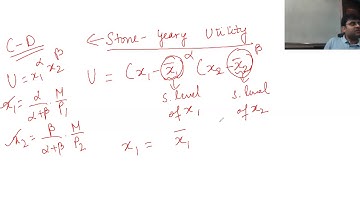 C-D
U = x₁^α x₂^β
x₁ = α/(α+β) · M/P₁
x₂ = β/(α+β) · M/P₂
← Stone-Geary Utility
U = (x₁ - x̄₁)^α (x₂ - x̄₂)^β
S. level of x₁
S. level of x₂
x₁ = x̄₁